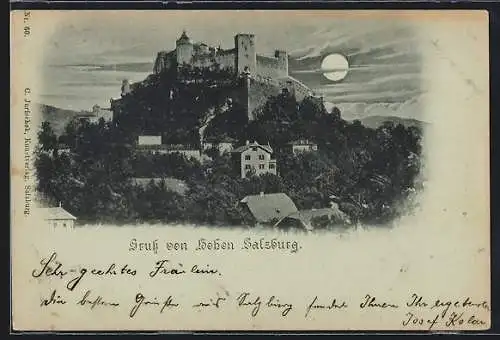 Nr. 60.
C. Jurischek, Kunstverlag, Salzburg.
Gruß von Hohen Salzburg.
Sehr geehrtes Fräulein.
die besten Grüsse aus Salzburg sendet Ihnen Ihr ergebenster
Josef Kolar